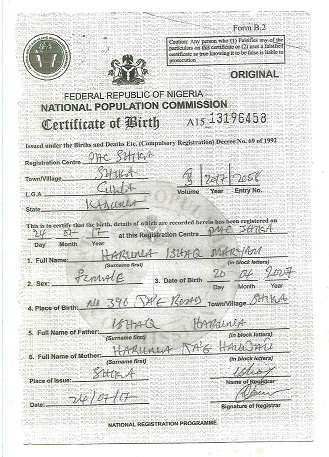 Form B.2
Caution: Any person who (1) Falsifies any of the
particulars on this certificate or (2) uses a falsified
certificate as true knowing it to be false is liable to
prosecution
ORIGINAL
FEDERAL REPUBLIC OF NIGERIA
NATIONAL POPULATION COMMISSION
Certificate of Birth A15 13196458
Issued under the Births and Deaths Etc. (Compulsory Registration) Decree No. 69 of 1992
Registration Centre PHC SHIKA
Town/Village SHIKA
L.G.A
State KADUNA
2017 2058
Volume Year Entry No.
This is to certify that the birth, details of which are recorded herein has been registered on
24 07 17 at this Registration Centre PHC SHIKA
Day Month Year
1. Full Name: HARUNA ISHAQ MARYAM
(Surname first) (in block letters)
2. Sex: FEMALE 3. Date of Birth 20 04 2007
Day Month Year
4. Place of Birth: NO 390 ROAD Town/Village SHIKA
5. Full Name of Father: ISHAQ HARUNA
(Surname first) (in block letters)
6. Full Name of Mother: HARUNA
(Surname first) (in block letters)
Place of Issue: SHIKA
Name of Registrar
Date: 24/07/17
Signature of Registrar
NATIONAL REGISTRATION PROGRAMME